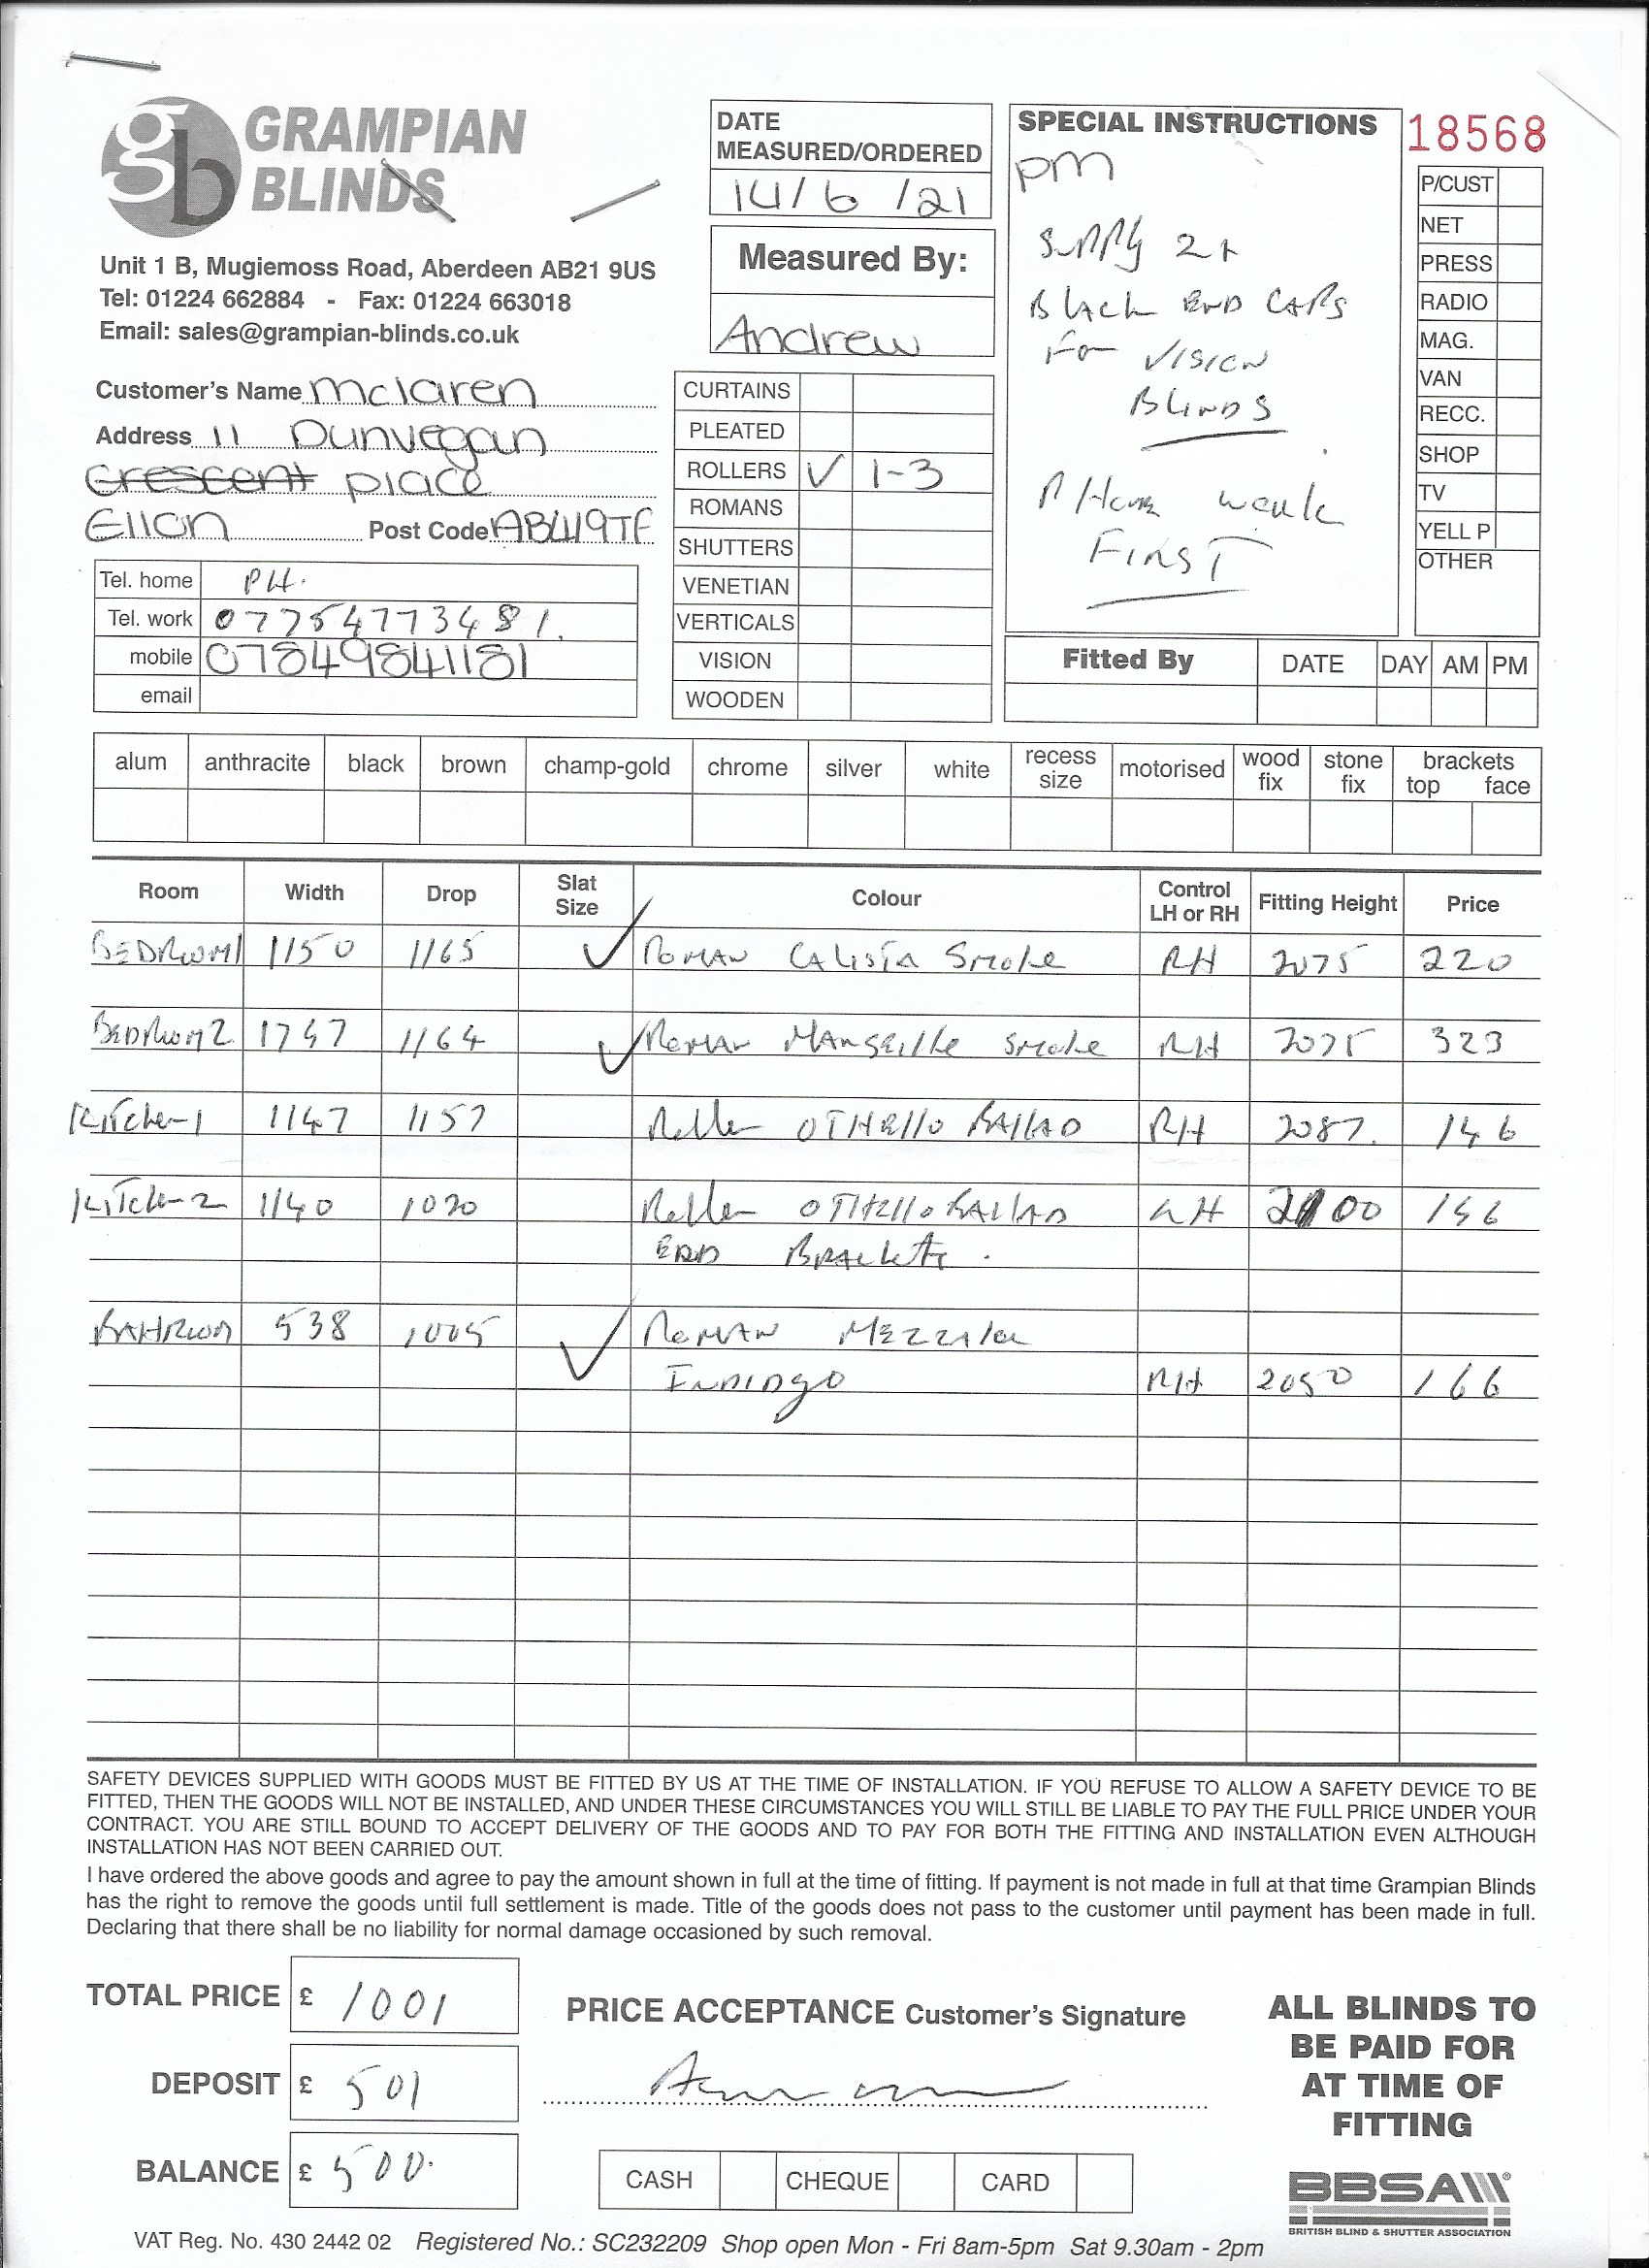 gb GRAMPIAN
BLINDS
Unit 1 B, Mugiemoss Road, Aberdeen AB21 9US
Tel: 01224 662884 - Fax: 01224 663018
Email: sales@grampian-blinds.co.uk
DATE
MEASURED/ORDERED
14/6/21
Measured By:
Andrew
SPECIAL INSTRUCTIONS
pm
Supply 2x
Black END CAPS
For VISION
BLINDS
PHONE work
FIRST
18568
P/CUST
NET
PRESS
RADIO
MAG.
VAN
RECC.
SHOP
TV
YELL P
OTHER
Customer's Name mclaren
Address 11 Dunvegan
Crescent place
Ellon Post Code AB419TF
Tel. home PH.
Tel. work 07754773481.
mobile 07849841181
email
CURTAINS
PLEATED
ROLLERS ✓ 1-3
ROMANS
SHUTTERS
VENETIAN
VERTICALS
VISION
WOODEN
Fitted By DATE DAY AM PM
alum anthracite black brown champ-gold chrome silver white recess size motorised wood fix stone fix brackets top face
Room Width Drop Slat Size Colour Control LH or RH Fitting Height Price
BEDROOM1 1150 1165 ✓ ROMAN CALISTA Smoke RH 2075 220
BEDROOM2 1747 1164 ✓ ROMAN MARSEILLE Smoke RH 2075 323
Kitchen1 1147 1157 Roller OTHELLO BALLAD RH 2087. 146
Kitchen2 1140 1020 Roller OTHELLO BALLAD LH 2100 146
END Brackets.
BAHROOM 538 1005 ✓ ROMAN
RH 2050 166
SAFETY DEVICES SUPPLIED WITH GOODS MUST BE FITTED BY US AT THE TIME OF INSTALLATION. IF YOU REFUSE TO ALLOW A SAFETY DEVICE TO BE
FITTED, THEN THE GOODS WILL NOT BE INSTALLED, AND UNDER THESE CIRCUMSTANCES YOU WILL STILL BE LIABLE TO PAY THE FULL PRICE UNDER YOUR
CONTRACT. YOU ARE STILL BOUND TO ACCEPT DELIVERY OF THE GOODS AND TO PAY FOR BOTH THE FITTING AND INSTALLATION EVEN ALTHOUGH
INSTALLATION HAS NOT BEEN CARRIED OUT.
I have ordered the above goods and agree to pay the amount shown in full at the time of fitting. If payment is not made in full at that time Grampian Blinds
has the right to remove the goods until full settlement is made. Title of the goods does not pass to the customer until payment has been made in full.
Declaring that there shall be no liability for normal damage occasioned by such removal.
TOTAL PRICE £ 1001
DEPOSIT £ 501
BALANCE £ 500.
PRICE ACCEPTANCE Customer's Signature
CASH CHEQUE CARD
ALL BLINDS TO
BE PAID FOR
AT TIME OF
FITTING
BBSA
BRITISH BLIND & SHUTTER ASSOCIATION
VAT Reg. No. 430 2442 02 Registered No.: SC232209 Shop open Mon - Fri 8am-5pm Sat 9.30am - 2pm